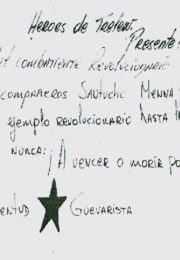 Heroes de Trelew
Presente
del combatiente Revolucionario
compañeros Santucho Menna
ejemplo revolucionario hasta
nunca: ¡A vencer o morir po
entud ★ Guevarista